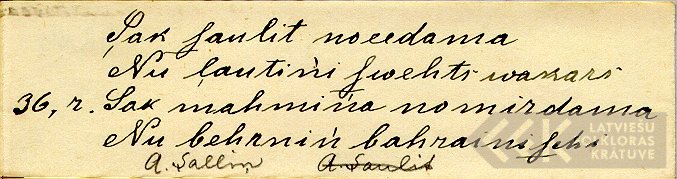 Ṣak ſaulit noeedama
Nu ļautiņi ſwehts wakars
36, r. Sak mahmiņa nomirdama
Nu behrniņ bahraini ſchi
A. Sallin A. Saulit
LATVIEŠU
FOLKLORAS
KRĀTUVE